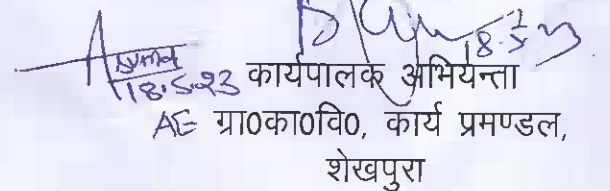 18.5.23
18.5.23 कार्यपालक अभियन्ता
AE ग्रा0का0वि0, कार्य प्रमण्डल,
शेखपुरा